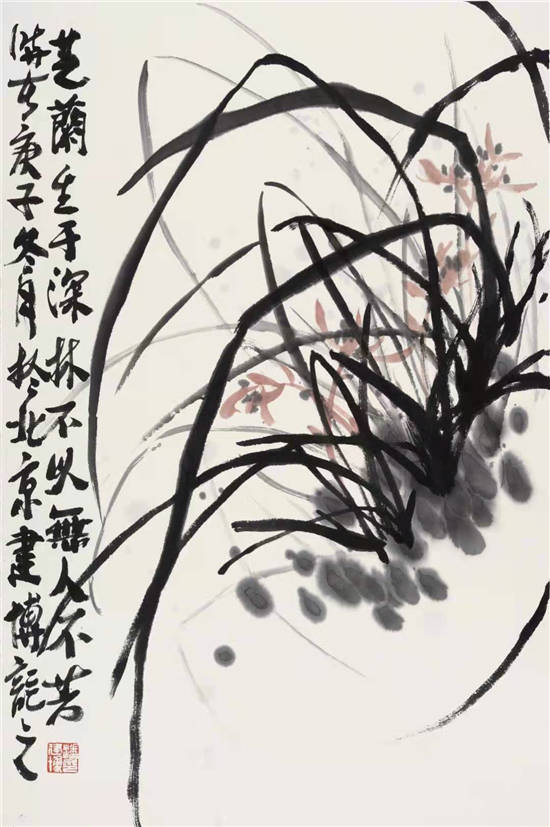 芝蘭生于深林不以無人不芳
時在庚子冬月於北京建博記之